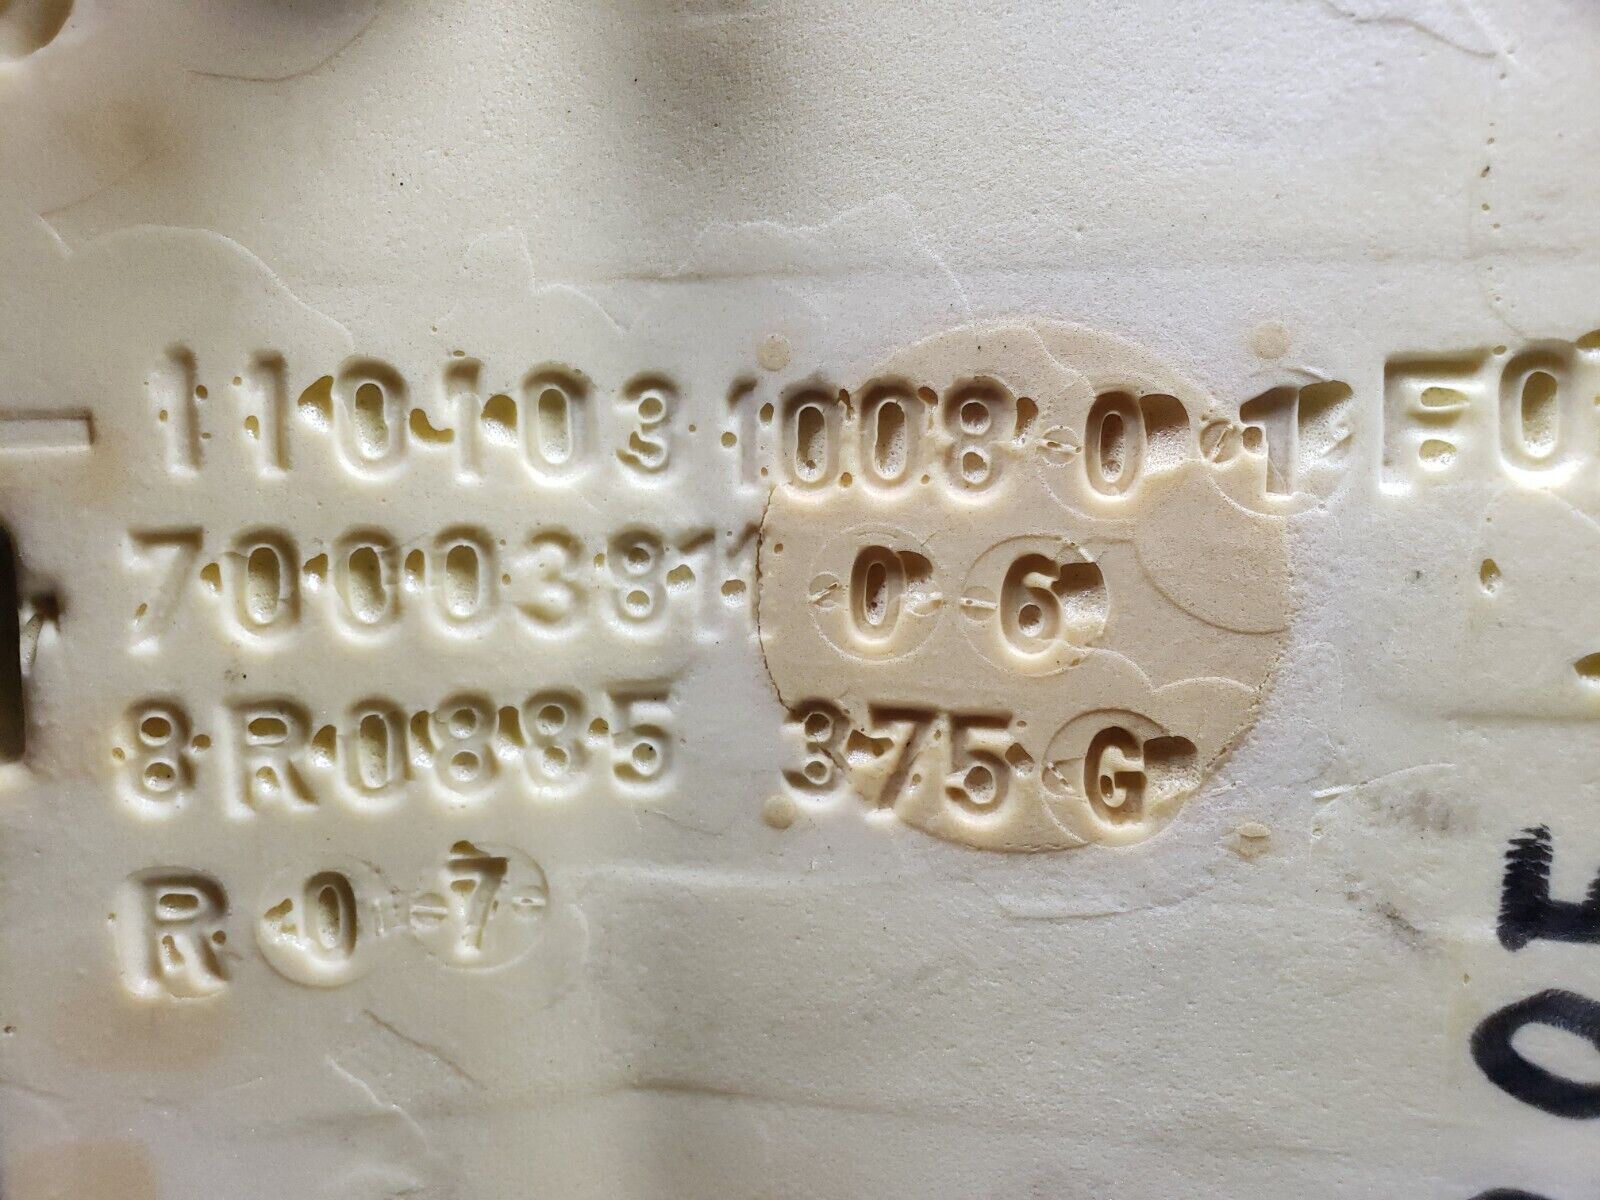 1101031008 0 1 F0
70003811 0 6
8R0885 375 G
R 0 7